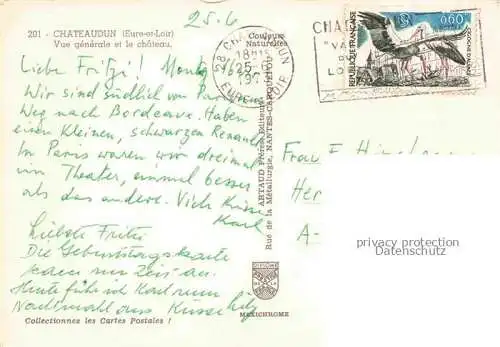 25.6
201 - CHATEAUDUN (Eure-et-Loir)
Vue générale et le château.
Couleurs
Naturelles
Liebe Fritzi! Montag
Wir sind südlich von Paris am
Weg nach Bordeaux. Haben
einen kleinen, schwarzen Renault
In Paris waren wir dreimal
im Theater, einmal besser
als das andere. Viele Küsse
Karl
Liebste Fritzi
Die Geburtstagskarte
kam zur Zeit an.
Heute führ
Karl zum
Nachtmahl aus Küsse
Collectionnez les Cartes Postales !
ARTAUD Frères Editeurs
Rue de la Métallurgie, NANTES-CARQUEFOU
MEXICHROME
28 CHATEAUDUN
18H15
25-6
EURE ET LOIR
CHA
"VA
LO
REPUBLIQUE FRANÇAISE
0,60
POSTES
CIGOGNE D'ALSACE
Frau F.
Her
A-
privacy protection
Datenschutz